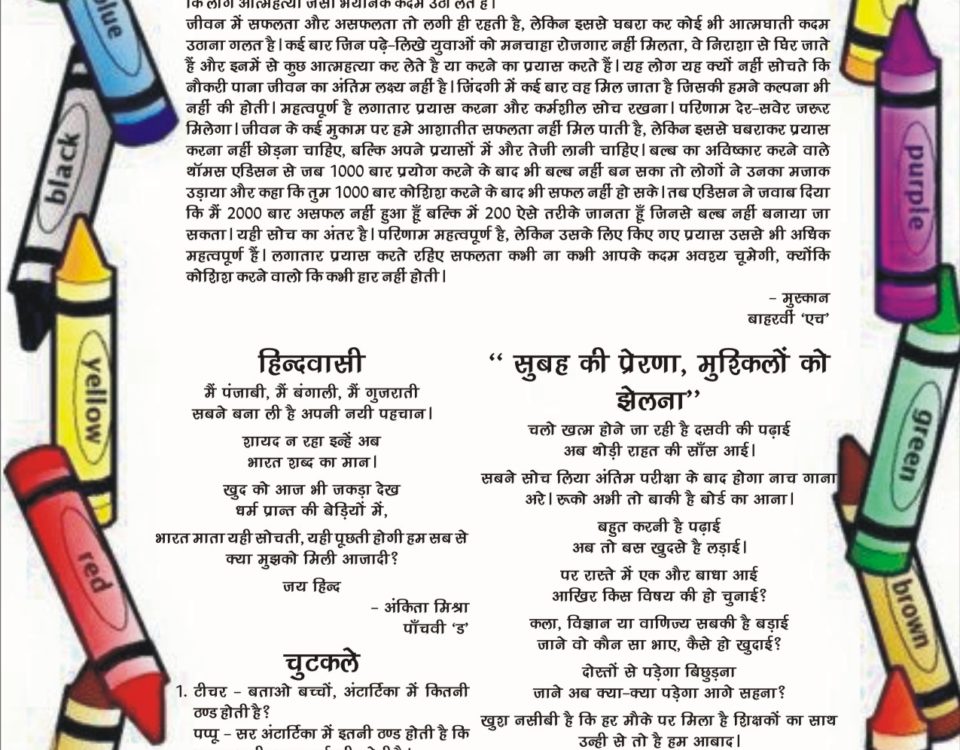 कि लोग आत्महत्या जैसा भयानक कदम उठा लेते हैं।
जीवन में सफलता और असफलता तो लगी ही रहती है, लेकिन इससे घबरा कर कोई भी आत्मघाती कदम
उठाना गलत है। कई बार जिन पढ़े-लिखे युवाओं को मनचाहा रोजगार नहीं मिलता, वे निराशा से घिर जाते
हैं और इनमें से कुछ आत्महत्या कर लेते है या करने का प्रयास करते हैं। यह लोग यह क्यों नहीं सोचते कि
नौकरी पाना जीवन का अंतिम लक्ष्य नहीं है। जिंदगी में कई बार वह मिल जाता है जिसकी हमने कल्पना भी
नहीं की होती। महत्वपूर्ण है लगातार प्रयास करना और कर्मशील सोच रखना। परिणाम देर-सवेर जरूर
मिलेगा। जीवन के कई मुकाम पर हमे आशातीत सफलता नहीं मिल पाती है, लेकिन इससे घबराकर प्रयास
करना नहीं छोड़ना चाहिए, बल्कि अपने प्रयासों में और तेजी लानी चाहिए। बल्ब का अविष्कार करने वाले
थॉमस एडिसन से जब 1000 बार प्रयोग करने के बाद भी बल्ब नहीं बन सका तो लोगों ने उनका मजाक
उड़ाया और कहा कि तुम 1000 बार कोशिश करने के बाद भी सफल नहीं हो सके। तब एडिसन ने जवाब दिया
कि मैं 2000 बार असफल नहीं हुआ हूँ बल्कि में 200 ऐसे तरीके जानता हूँ जिनसे बल्ब नहीं बनाया जा
सकता। यही सोच का अंतर है। परिणाम महत्वपूर्ण है, लेकिन उसके लिए किए गए प्रयास उससे भी अधिक
महत्वपूर्ण हैं। लगातार प्रयास करते रहिए सफलता कभी ना कभी आपके कदम अवश्य चूमेगी, क्योंकि
कोशिश करने वालो कि कभी हार नहीं होती।
- मुस्कान
बाहरवीं ‘एच’
हिन्दवासी
मैं पंजाबी, मैं बंगाली, मैं गुजराती
सबने बना ली है अपनी नयी पहचान।
शायद न रहा इन्हें अब
भारत शब्द का मान।
खुद को आज भी जकड़ा देख
धर्म प्रान्त की बेड़ियों में,
भारत माता यही सोचती, यही पूछती होगी हम सब से
क्या मुझको मिली आजादी?
जय हिन्द
- अंकिता मिश्रा
पाँचवी ‘ड’
चुटकले
1. टीचर - बताओ बच्चों, अंटार्टिका में कितनी
ठण्ड होती है?
पप्पू - सर अंटार्टिका में इतनी ठण्ड होती है कि
“ सुबह की प्रेरणा, मुश्किलों को
झेलना”
चलो खत्म होने जा रही है दसवी की पढ़ाई
अब थोड़ी राहत की साँस आई।
सबने सोच लिया अंतिम परीक्षा के बाद होगा नाच गाना
अरे। रूको अभी तो बाकी है बोर्ड का आना।
बहुत करनी है पढ़ाई
अब तो बस खुदसे है लड़ाई।
पर रास्ते में एक और बाधा आई
आखिर किस विषय की हो चुनाई?
कला, विज्ञान या वाणिज्य सबकी है बड़ाई
जाने वो कौन सा भाए, कैसे हो खुदाई?
दोस्तों से पड़ेगा बिछुड़ना
जाने अब क्या-क्या पड़ेगा आगे सहना?
खुश नसीबी है कि हर मौके पर मिला है शिक्षकों का साथ
उन्ही से तो है हम आबाद।
blue
black
yellow
red
purple
green
brown